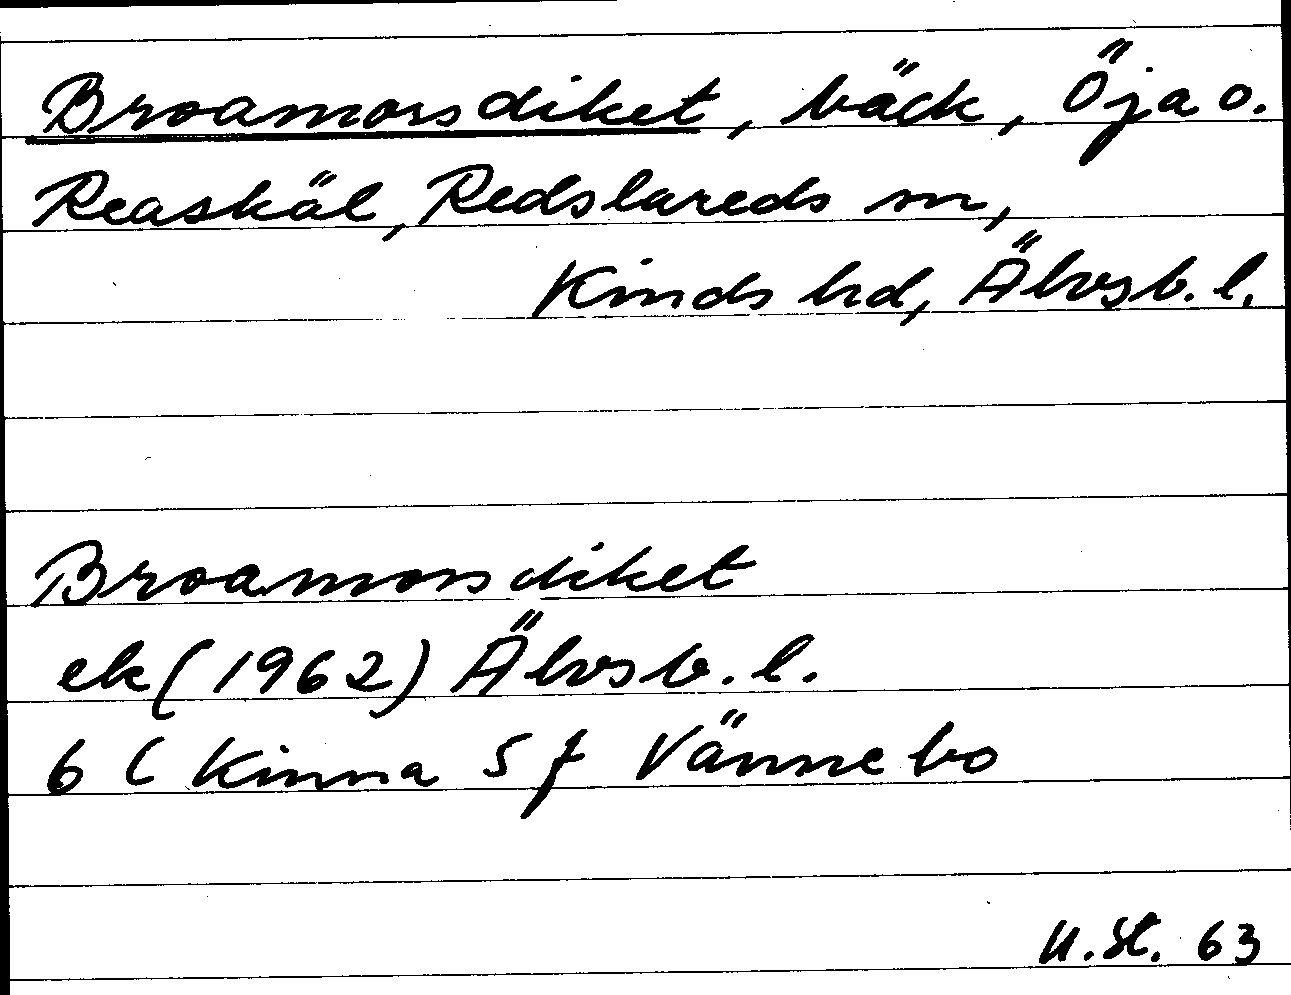 Broamorsdiket, bäck, Öja o.
Reaskäl, Redslareds sn,
Kinds hd, Älvsb. l.
Broamorsdiket
ek (1962) Älvsb. l.
6 C Kinna 5 f Vännebo
U.St. 63